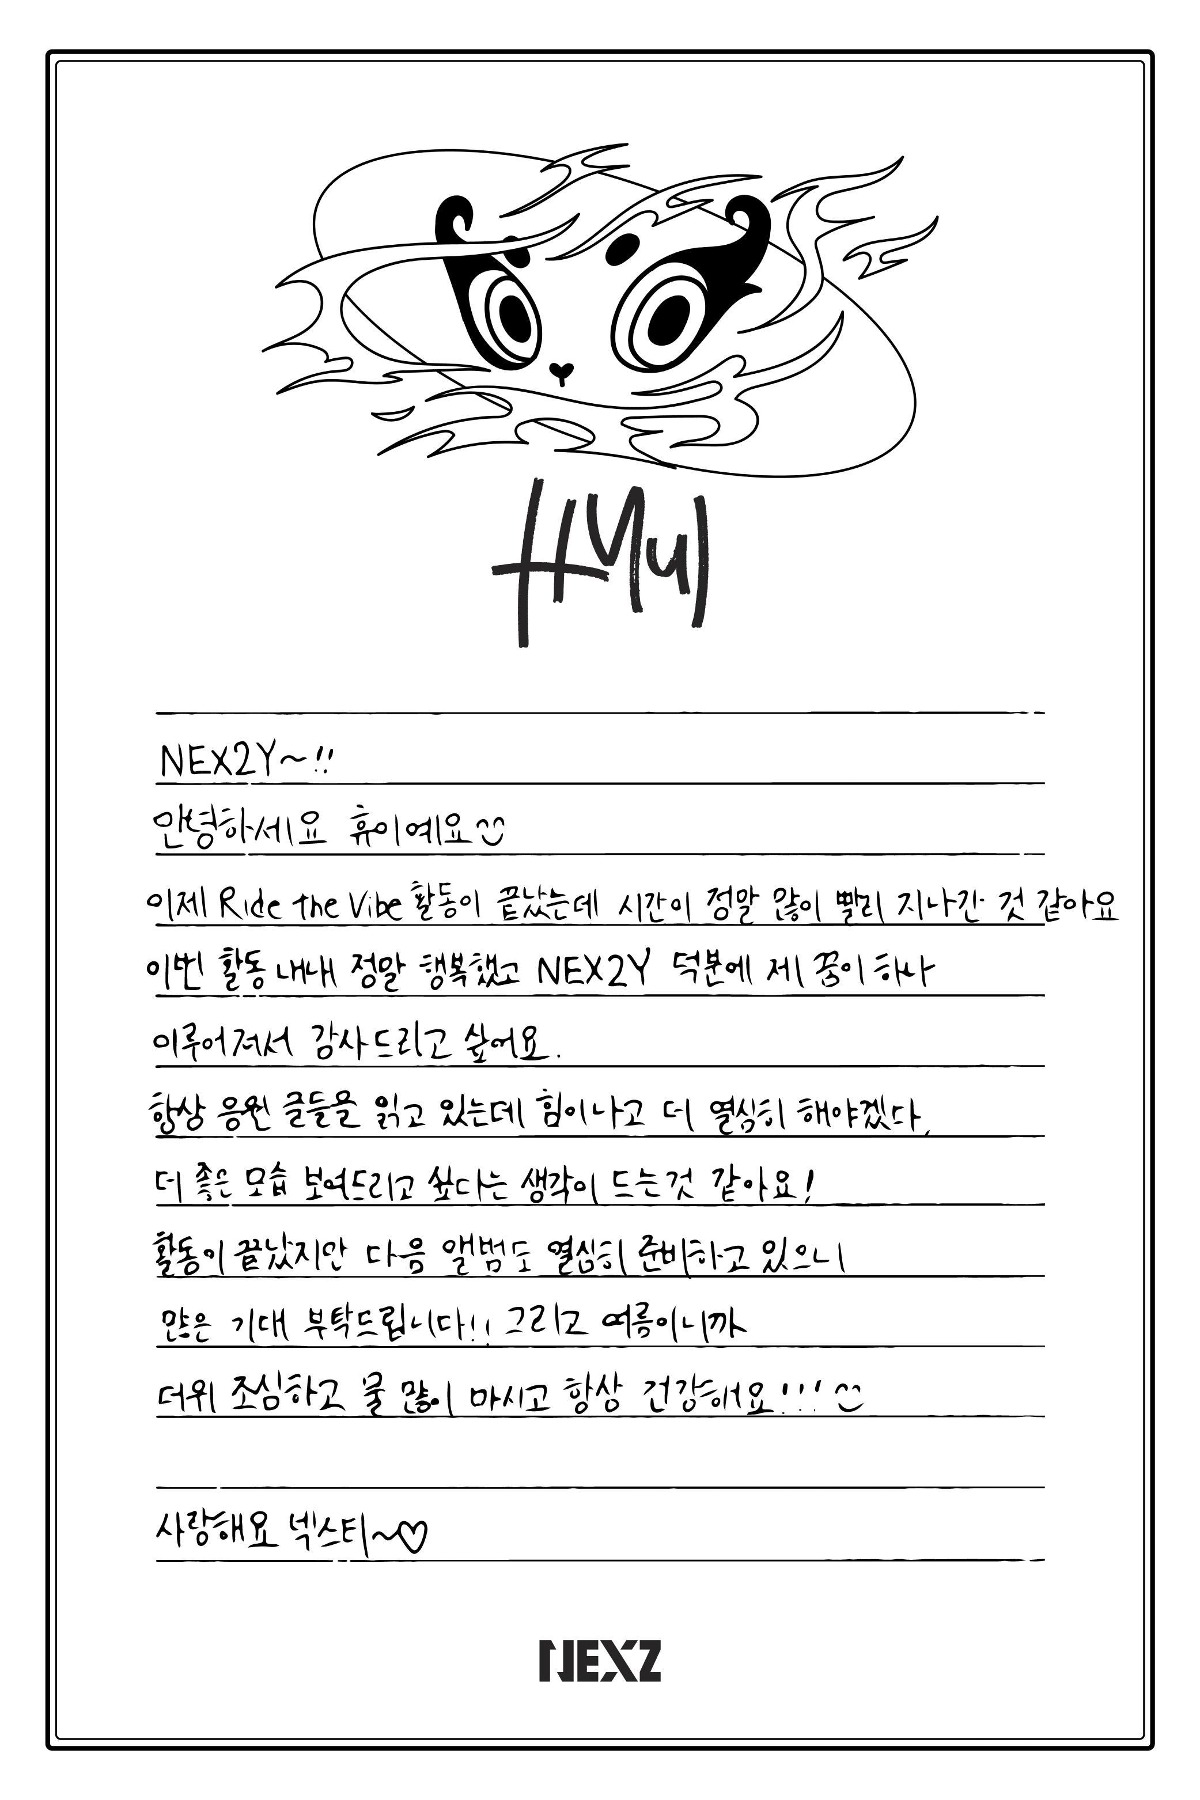 HYUI
NEX2Y~!!
안녕하세요 휴이예요
이제 Ride the Vibe 활동이 끝났는데 시간이 정말 많이 빨리 지나간 것 같아요
이번 활동 내내 정말 행복했고 NEX2Y 덕분에 제 꿈이 하나
이루어져서 감사드리고 싶어요.
항상 응원 글들을 읽고 있는데 힘이나고 더 열심히 해야겠다,
더 좋은 모습 보여드리고 싶다는 생각이 드는것 같아요!
활동이 끝났지만 다음 앨범도 열심히 준비하고 있으니
많은 기대 부탁드립니다!! 그리고 여름이니까
더위 조심하고 물 많이 마시고 항상 건강해요!!!
사랑해요 넥스티~♡
NEXZ